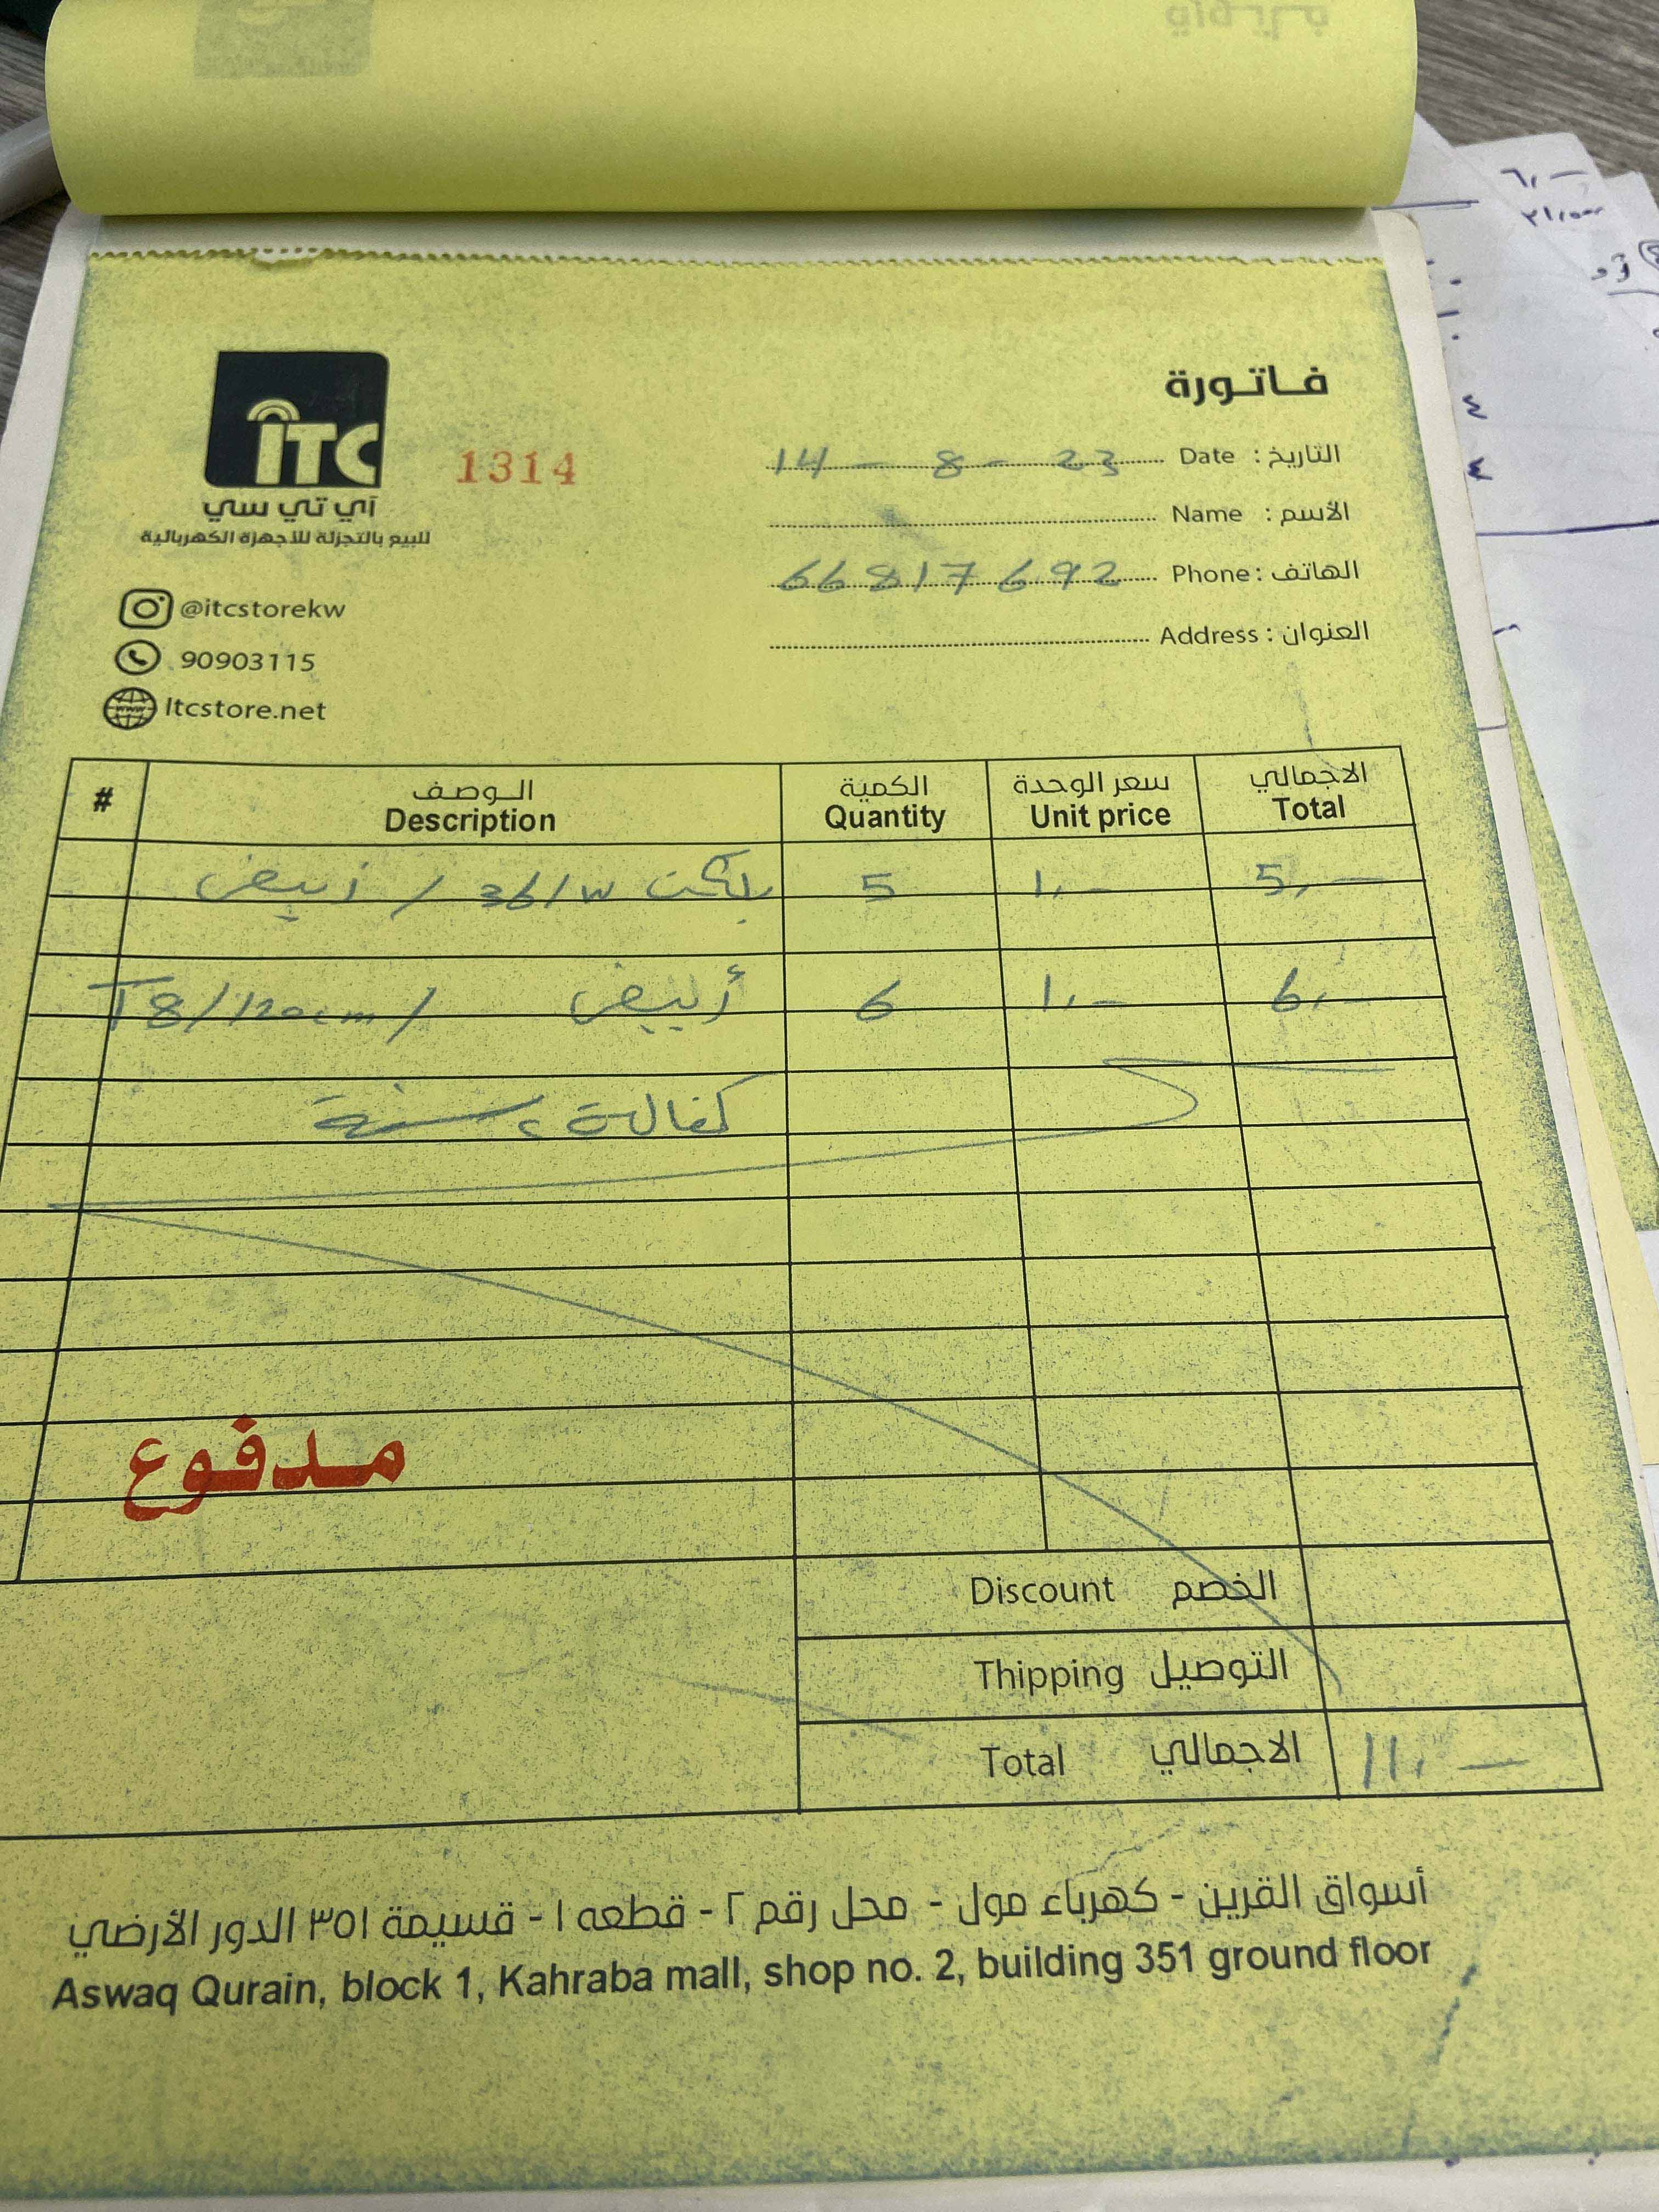 فاتورة
iTC
آي تي سي
للبيع بالتجزئة للأجهزة الكهربائية
1314
التاريخ : Date 14 - 8 - 23
الأسم : Name
الهاتف : Phone 66817692
العنوان : Address
@itcstorekw
90903115
Itcstore.net
# الـوصـف الكمية سعر الوحدة الاجمالي
Description Quantity Unit price Total
36/w / أبيض 5 1,- 5,-
T8/120cm / أبيض 6 1,- 6,-
كفالة سنة
مدفوع
Discount الخصم
Thipping التوصيل
Total الاجمالي 11,-
أسواق القرين - كهرباء مول - محل رقم ٢ - قطعه ١ - قسيمة ٣٥١ الدور الأرضي
Aswaq Qurain, block 1, Kahraba mall, shop no. 2, building 351 ground floor